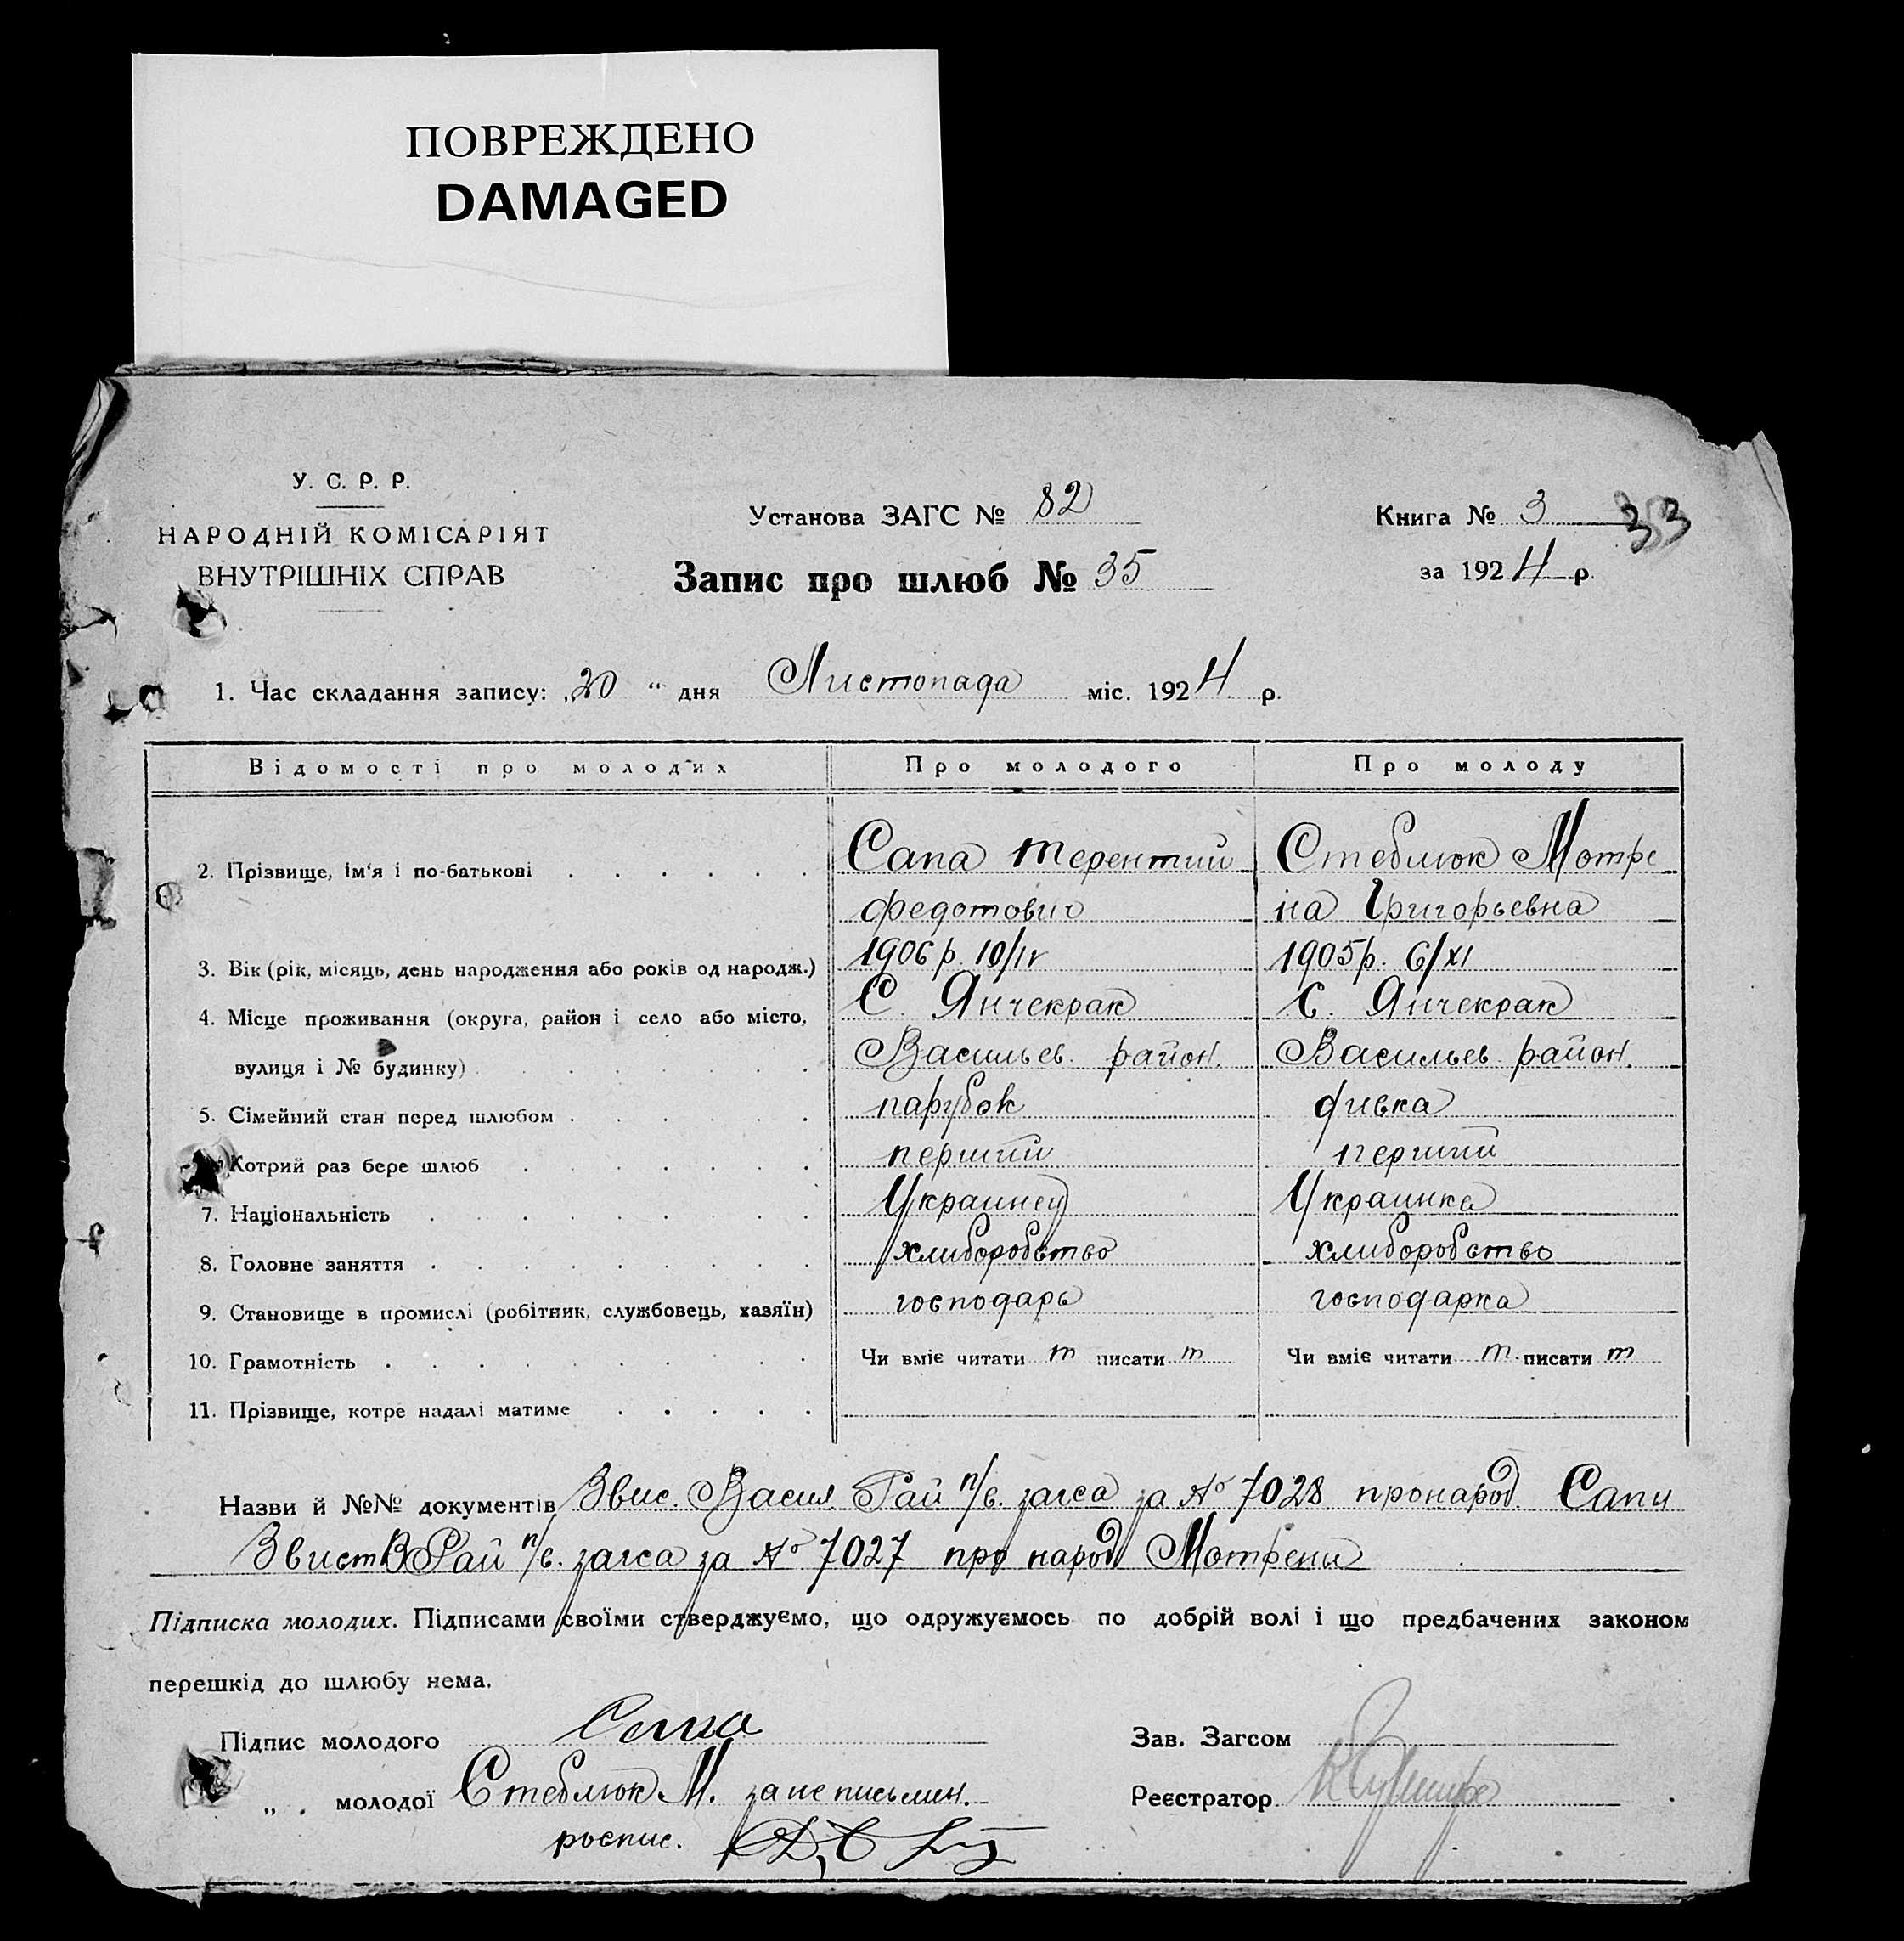 ПОВРЕЖДЕНО
DAMAGED
У. С. Р. Р.
НАРОДНІЙ КОМІСАРІЯТ
ВНУТРІШНІХ СПРАВ
Установа ЗАГС № 82
Запис про шлюб № 35
Книга № 3
33
за 1924 р.
1. Час складання запису: „20 “ дня Листопада міс. 1924 р.
Відомості про молодих Про молодого Про молоду
2. Прізвище, ім'я і по-батькові Сапа Терентий Стеблюк Мотре
федотович на Григорьевна
3. Вік (рік, місяць, день народження або років од народж.) 1906 р. 10/IV 1905 р. 6/XI
4. Місце проживання (округа, район і село або місто, С. Янчекрак С. Янчекрак
вулиця і № будинку) Васильев. район. Васильев. район.
5. Сімейний стан перед шлюбом парубок дивка
Котрий раз бере шлюб перший перший
7. Національність Украинец Украинка
8. Головне заняття хлиборобство хлиборобство
9. Становище в промислі (робітник, службовець, хазяїн) господарь господарка
10. Грамотність Чи вміє читати т писати т Чи вміє читати т. писати т
11. Прізвище, котре надалі матиме
Назви й №№ документів Звис. Васил Рай п/в. загса за № 7028 про народ. Сапи
Звист В Рай п/в. загса за № 7027 про народ Мотрени
Підписка молодих. Підписами своїми стверджуємо, що одружуємось по добрій волі і що предбачених законом
перешкід до шлюбу нема.
Підпис молодого Сапа Зав. Загсом
„ . молодої Стеблюк М. за не письмен. Реєстратор
роспис.